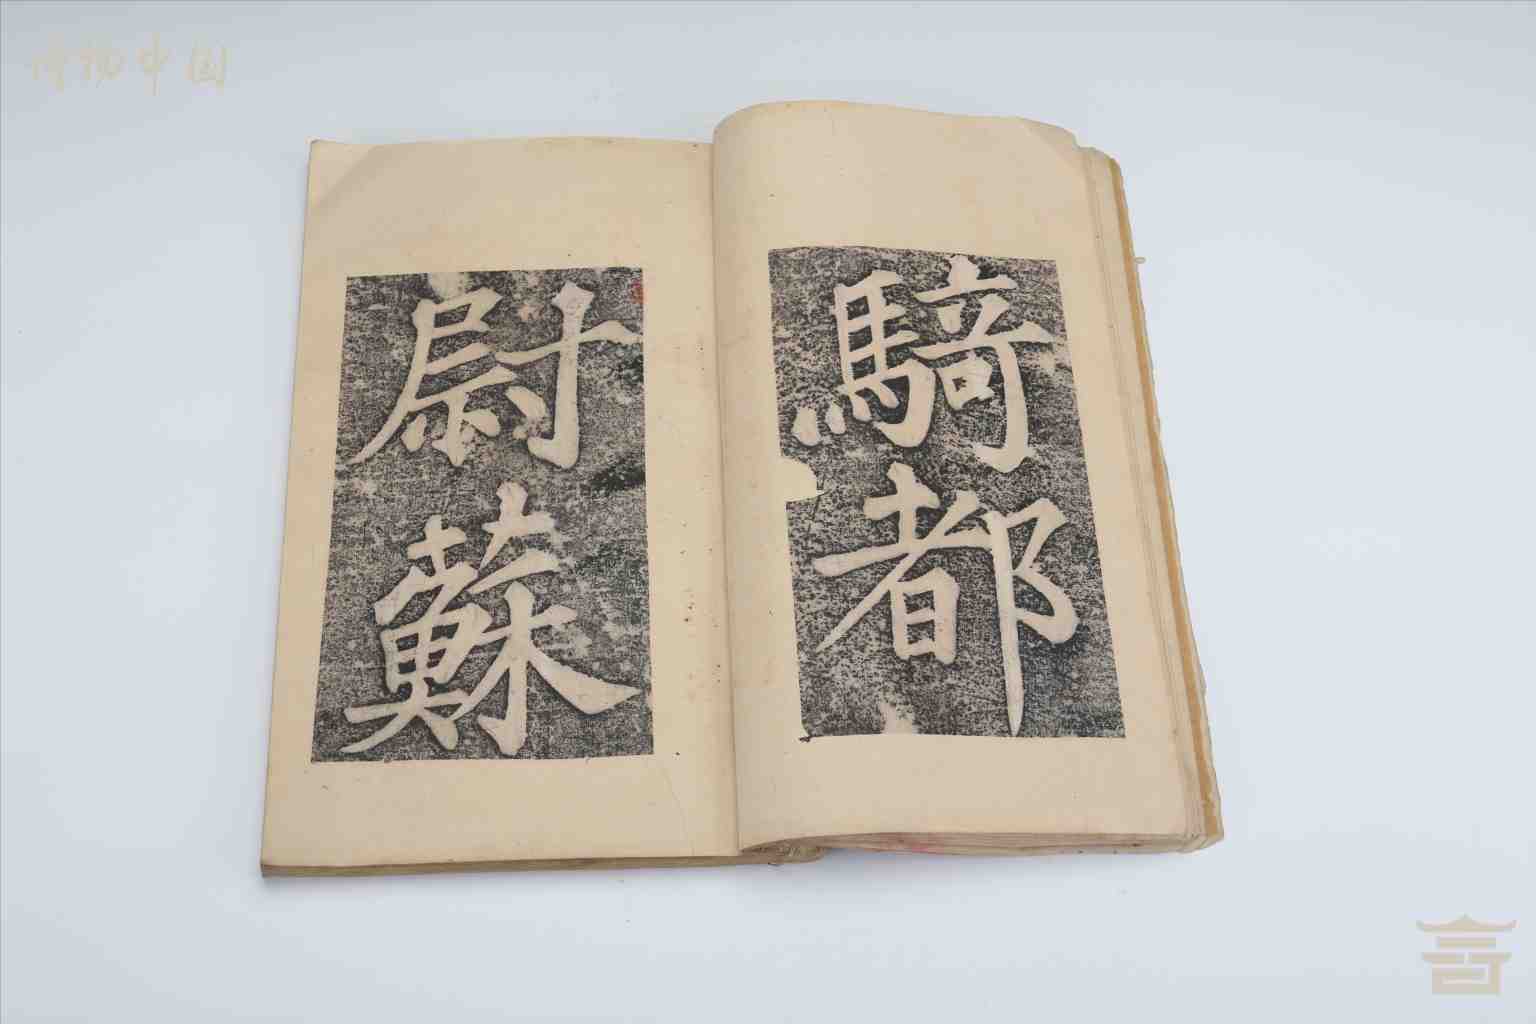 博物中国
騎都
尉蘇